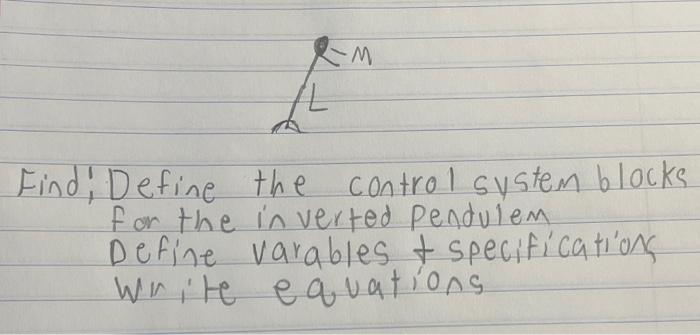 M
L
Find; Define the control system blocks
for the inverted pendulem
Define varables + specifications
Write equations